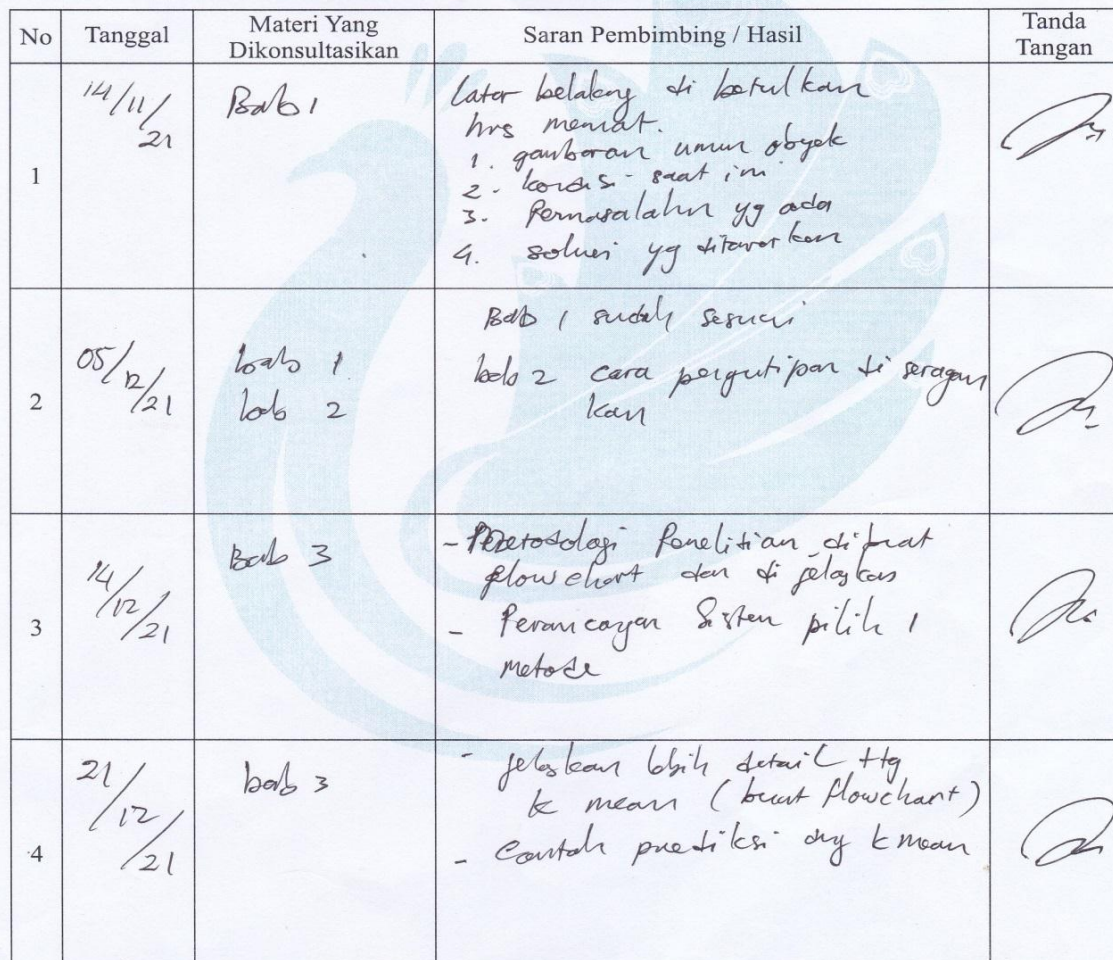 No Tanggal Materi Yang Dikonsultasikan Saran Pembimbing / Hasil Tanda Tangan
1 14/11/21 Bab 1
Latar belakang di betulkan
hrs memuat.
1. gambaran umum obyek
2. kondisi saat ini
3. Permasalahan yg ada
4. solusi yg ditawarkan
2 05/12/21 bab 1
bab 2
Bab 1 sudah sesuai
bab 2 cara pengutipan di seragam
kan
3 14/12/21 Bab 3
- Metodologi Penelitian dibuat
flowchart dan di jelaskan
- Perancangan Sistem pilih 1
metode
4 21/12/21 bab 3
- jelaskan lebih detail ttg
k mean (buat flowchart)
- Contoh prediksi dng k mean